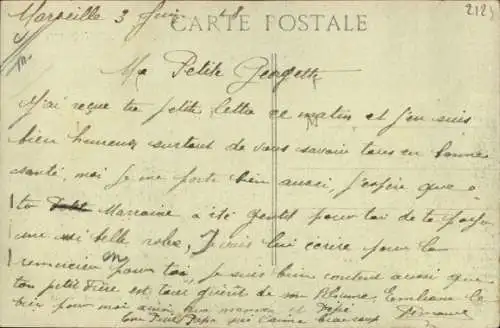 Marseille 3 Juin 18
2125
CARTE POSTALE
Ma Petite Georgette
J'ai reçue ta petite lettre ce matin et j'en suis
bien heureux surtout de vous savoir tous en bonne
santé, moi je me porte bien aussi, j'espère que
ta Marraine a été gentil pour toi de te payer
une si belle robe, Je vais lui écrire pour la
remercier pour toi, Je suis bien content aussi que
ton petit Frère est tout guérit de Embrasse le
bien pour moi ainsi que maman et Pépé
Ton Petit Papa qui t'aime beaucoup